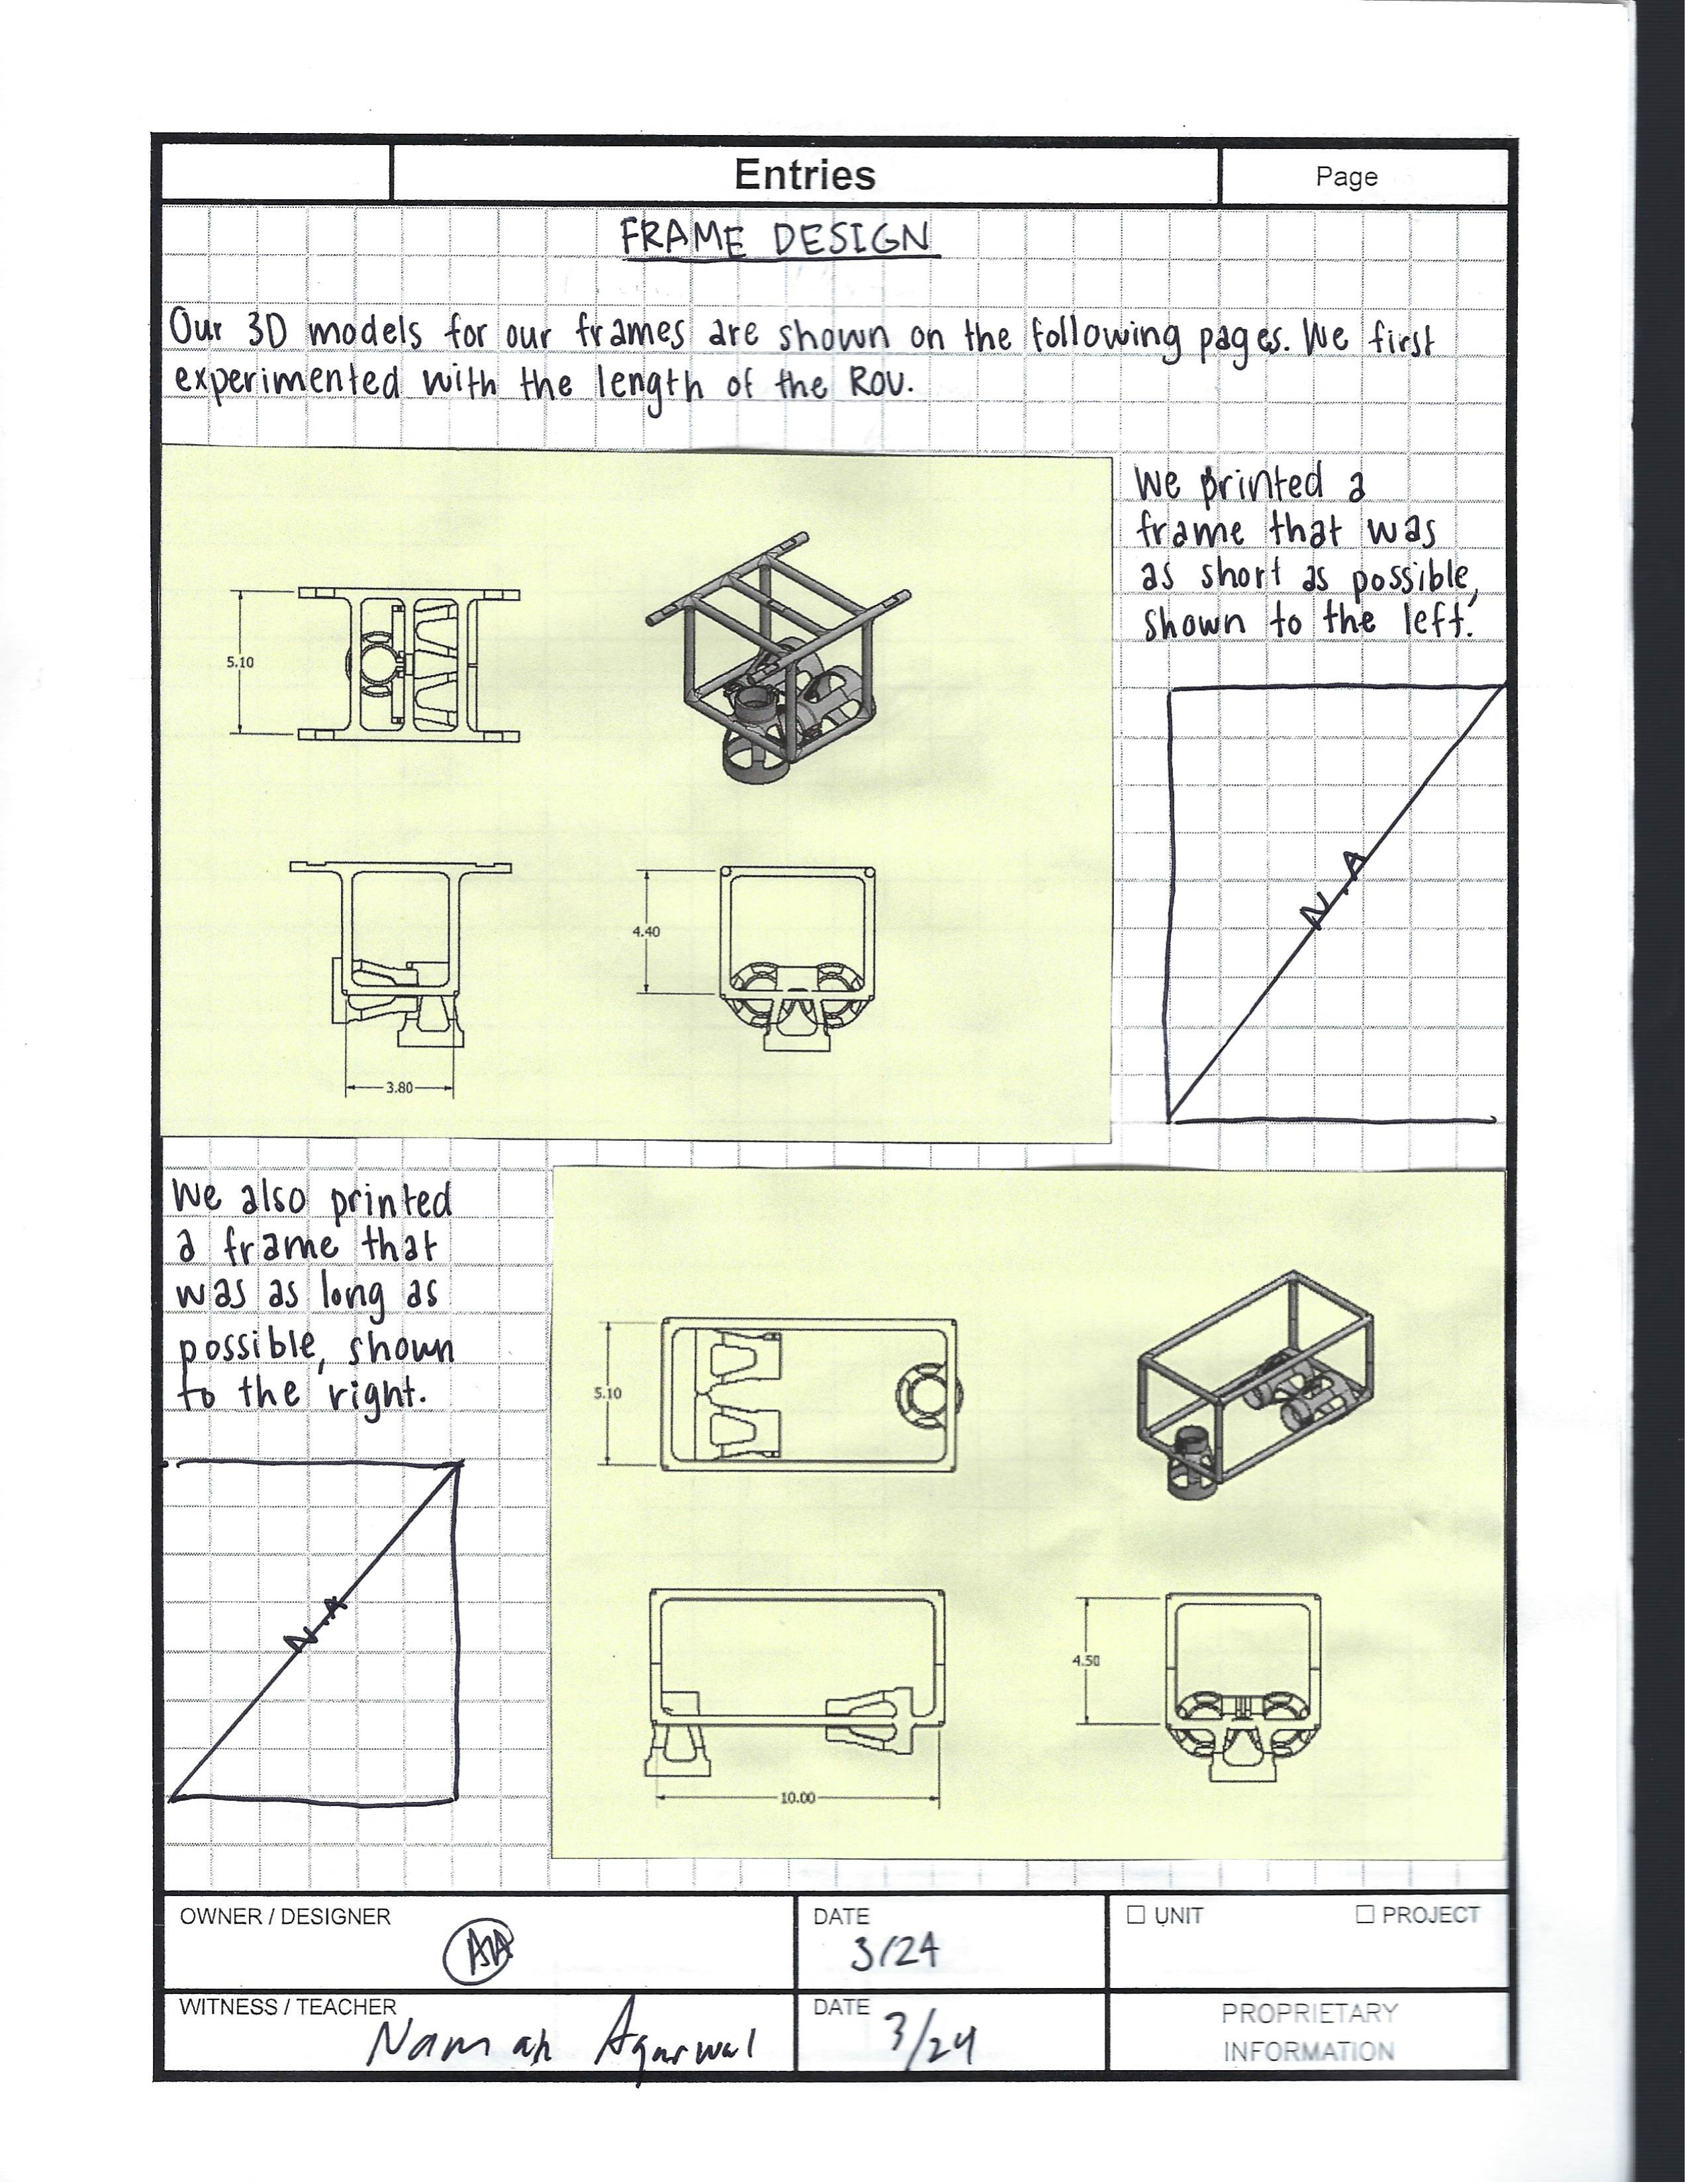 Entries
Page
FRAME DESIGN
Our 3D models for our frames are shown on the following pages. We first
experimented with the length of the ROV.
We printed a
frame that was
as short as possible,
shown to the left.
5.10
4.40
3.80
N.A
We also printed
a frame that
was as long as
possible, shown
to the right.
N.A
5.10
4.50
10.00
OWNER / DESIGNER
AA
DATE
3/24
UNIT
PROJECT
WITNESS / TEACHER
Namah Agarwal
DATE
3/24
PROPRIETARY
INFORMATION